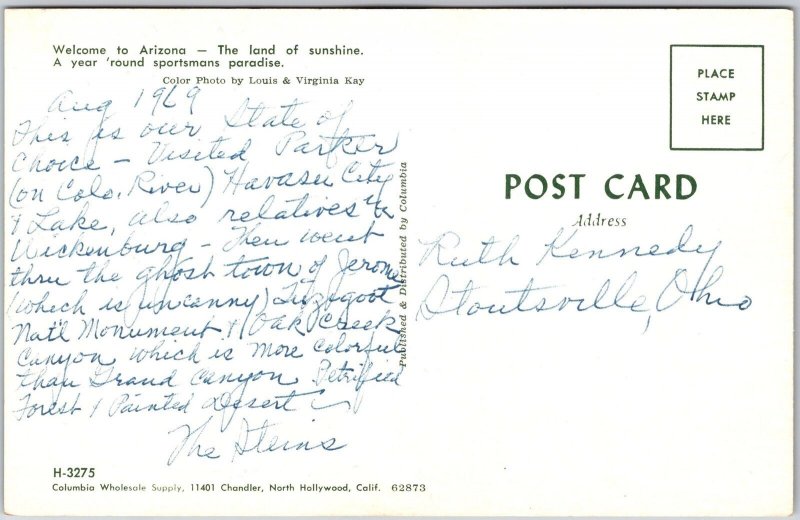 Welcome to Arizona — The land of sunshine.
A year 'round sportsmans paradise.
Color Photo by Louis & Virginia Kay
Aug 1969
This is our State of
Choice — Visited Parker
(on Colo. River) Havasu City
& Lake, also relatives in
Wickenburg — Then went
thru the ghost town of Jerome
(which is uncanny) Tuzigoot
Nat'l Monument & Oak Creek
Canyon which is more colorful
than Grand Canyon Petrified
Forest & Painted Desert
The Steins
H-3275
Columbia Wholesale Supply, 11401 Chandler, North Hollywood, Calif. 62873
Published & Distributed by Columbia
PLACE
STAMP
HERE
POST CARD
Address
Ruth Kennedy
Stoutsville, Ohio